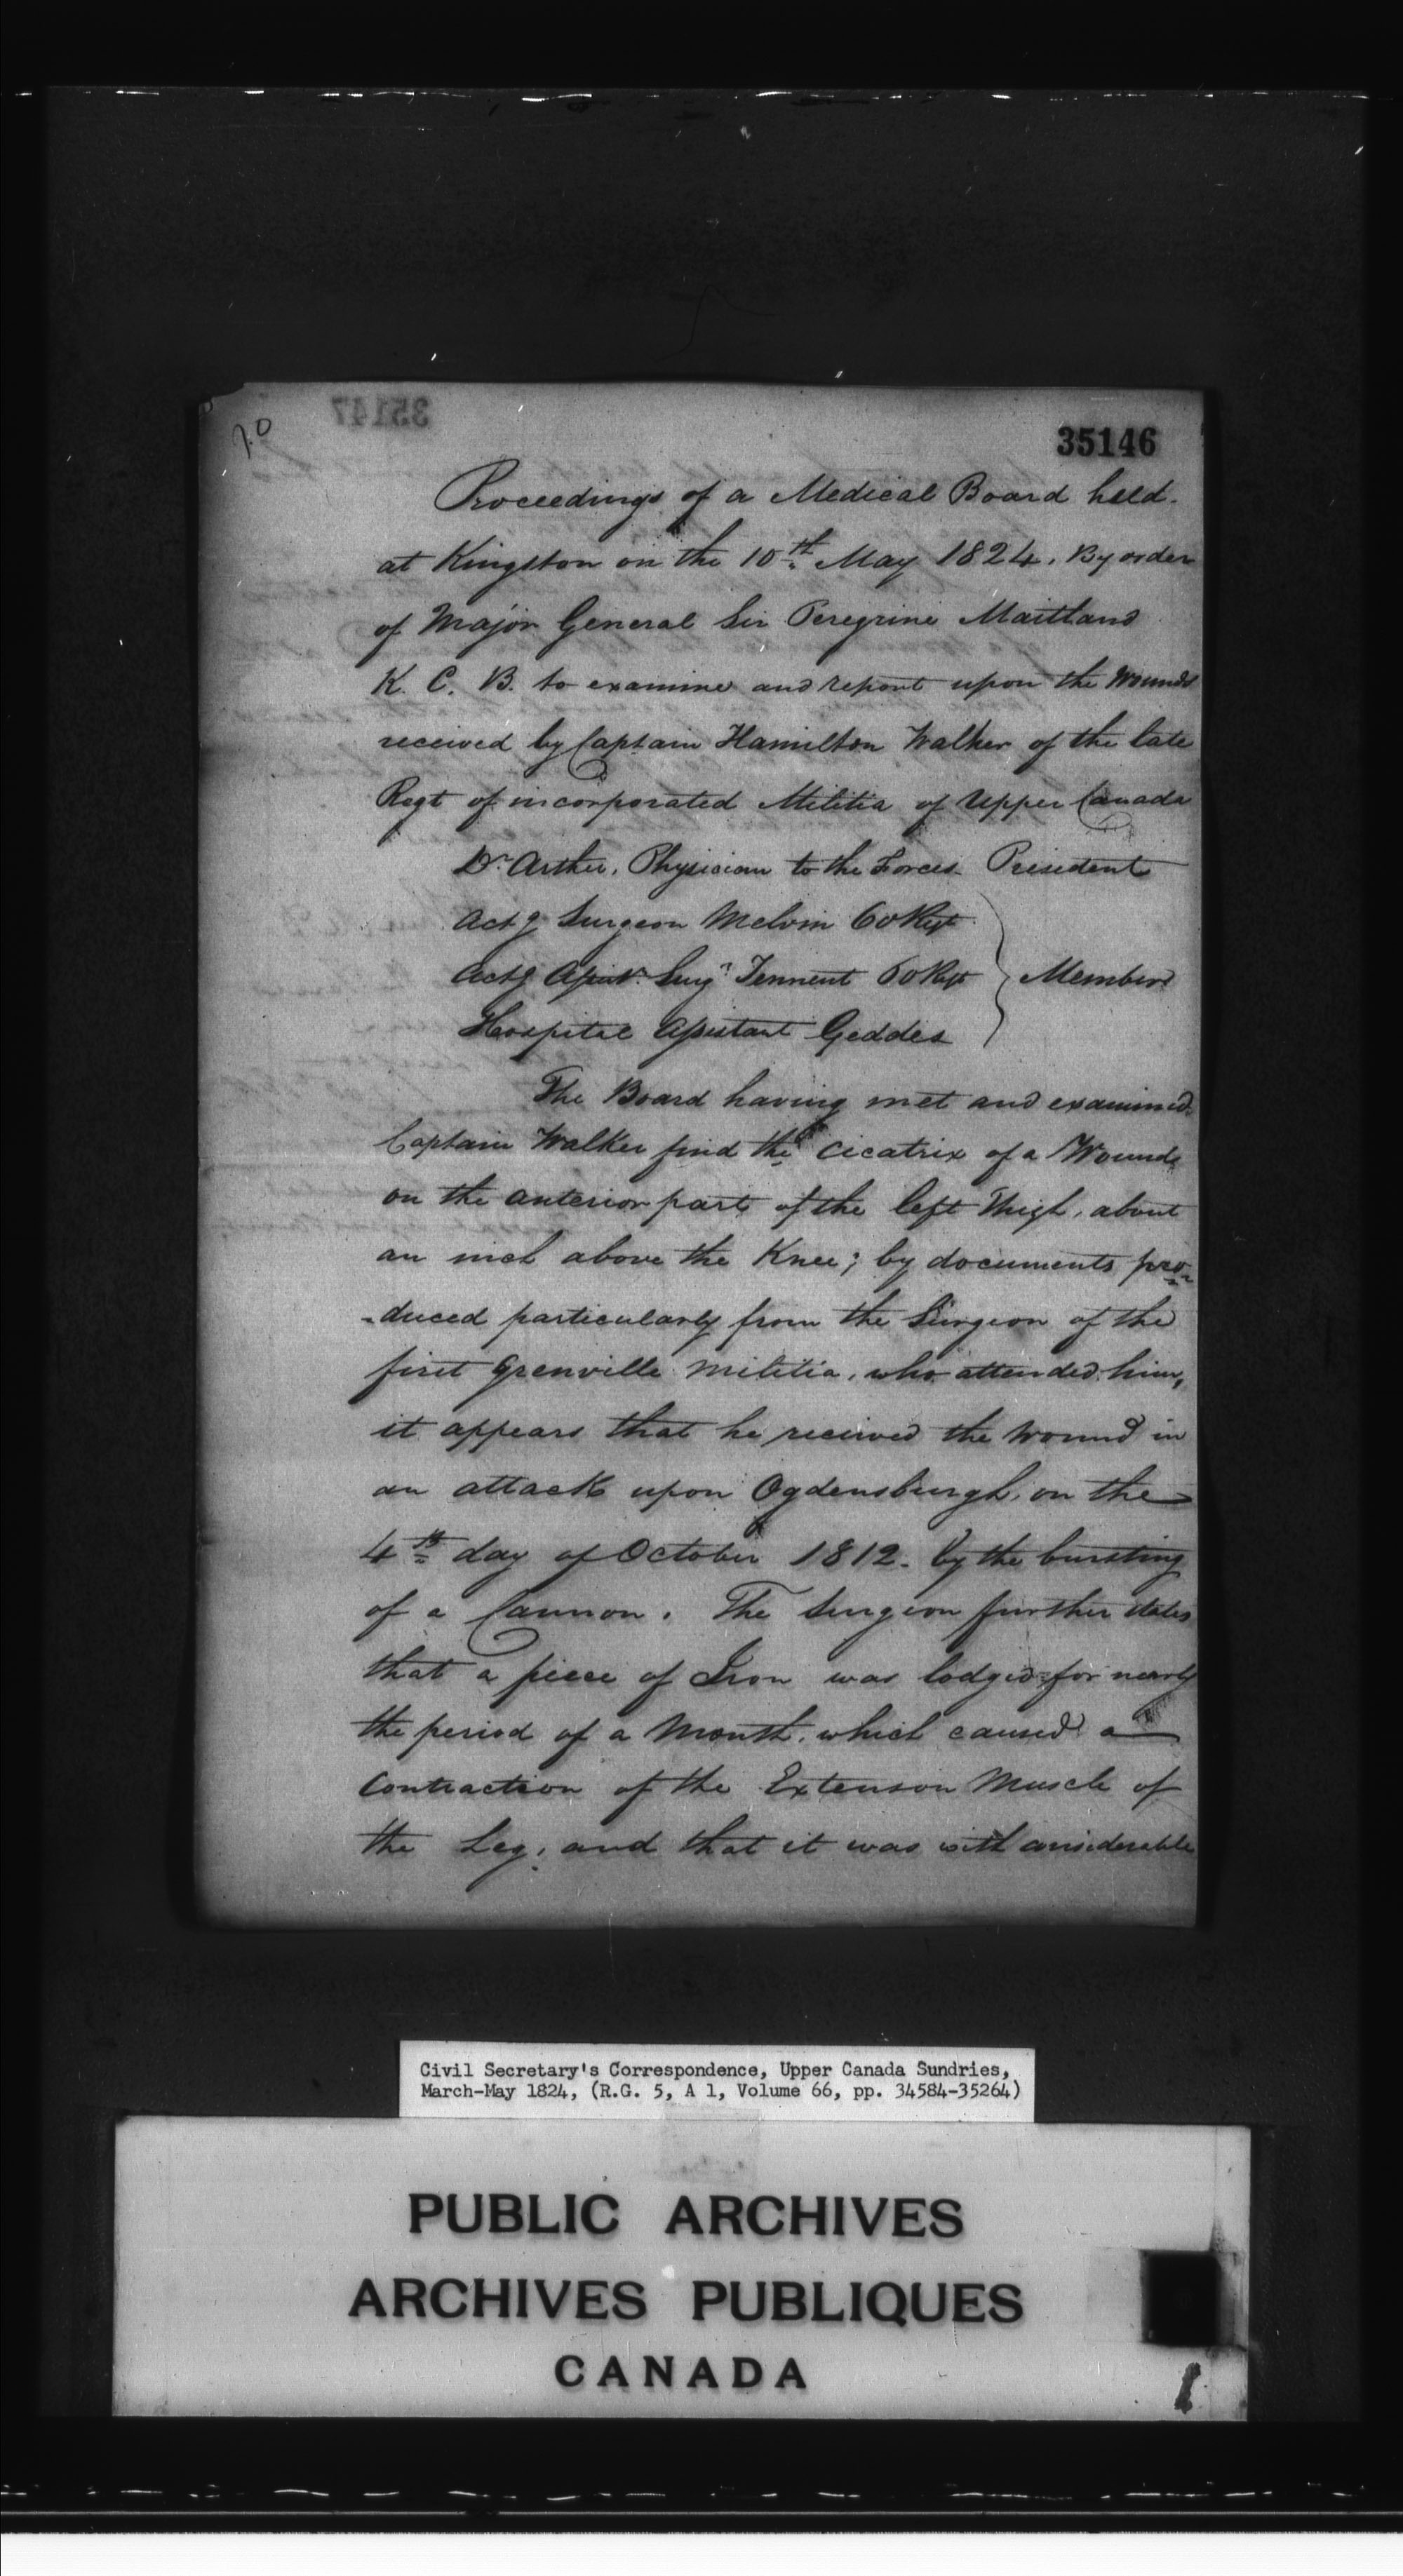 35146
Proceedings of a Medical Board held
at Kingston on the 10th May 1824. By order
of Major General Sir Peregrine Maitland
K. C. B. to examine and report upon the Wounds
received by Captain Hamilton Walker of the late
Regt of incorporated Militia of Upper Canada
Dr Arthur, Physician to the Forces President
Actg Surgeon Melvin 60 Regt
Actg Assist. Surgn Tennent 60 Regt } Members
Hospital Assistant Geddes
The Board having met and examined
Captain Walker find the cicatrix of a Wound
on the anterior part of the left Thigh, about
an inch above the Knee; by documents pro-
-duced particularly from the Surgeon of the
first Grenville Militia, who attended him,
it appears that he received the Wound in
an attack upon Ogdensburgh, on the
4th day of October 1812. by the bursting
of a Cannon. The Surgeon further states
that a piece of Iron was lodged for nearly
the period of a Month, which caused a
Contraction of the Extensor Muscle of
the Leg, and that it was with considerable
Civil Secretary's Correspondence, Upper Canada Sundries,
March-May 1824, (R.G. 5, A 1, Volume 66, pp. 34584-35264)
PUBLIC ARCHIVES
ARCHIVES PUBLIQUES
CANADA